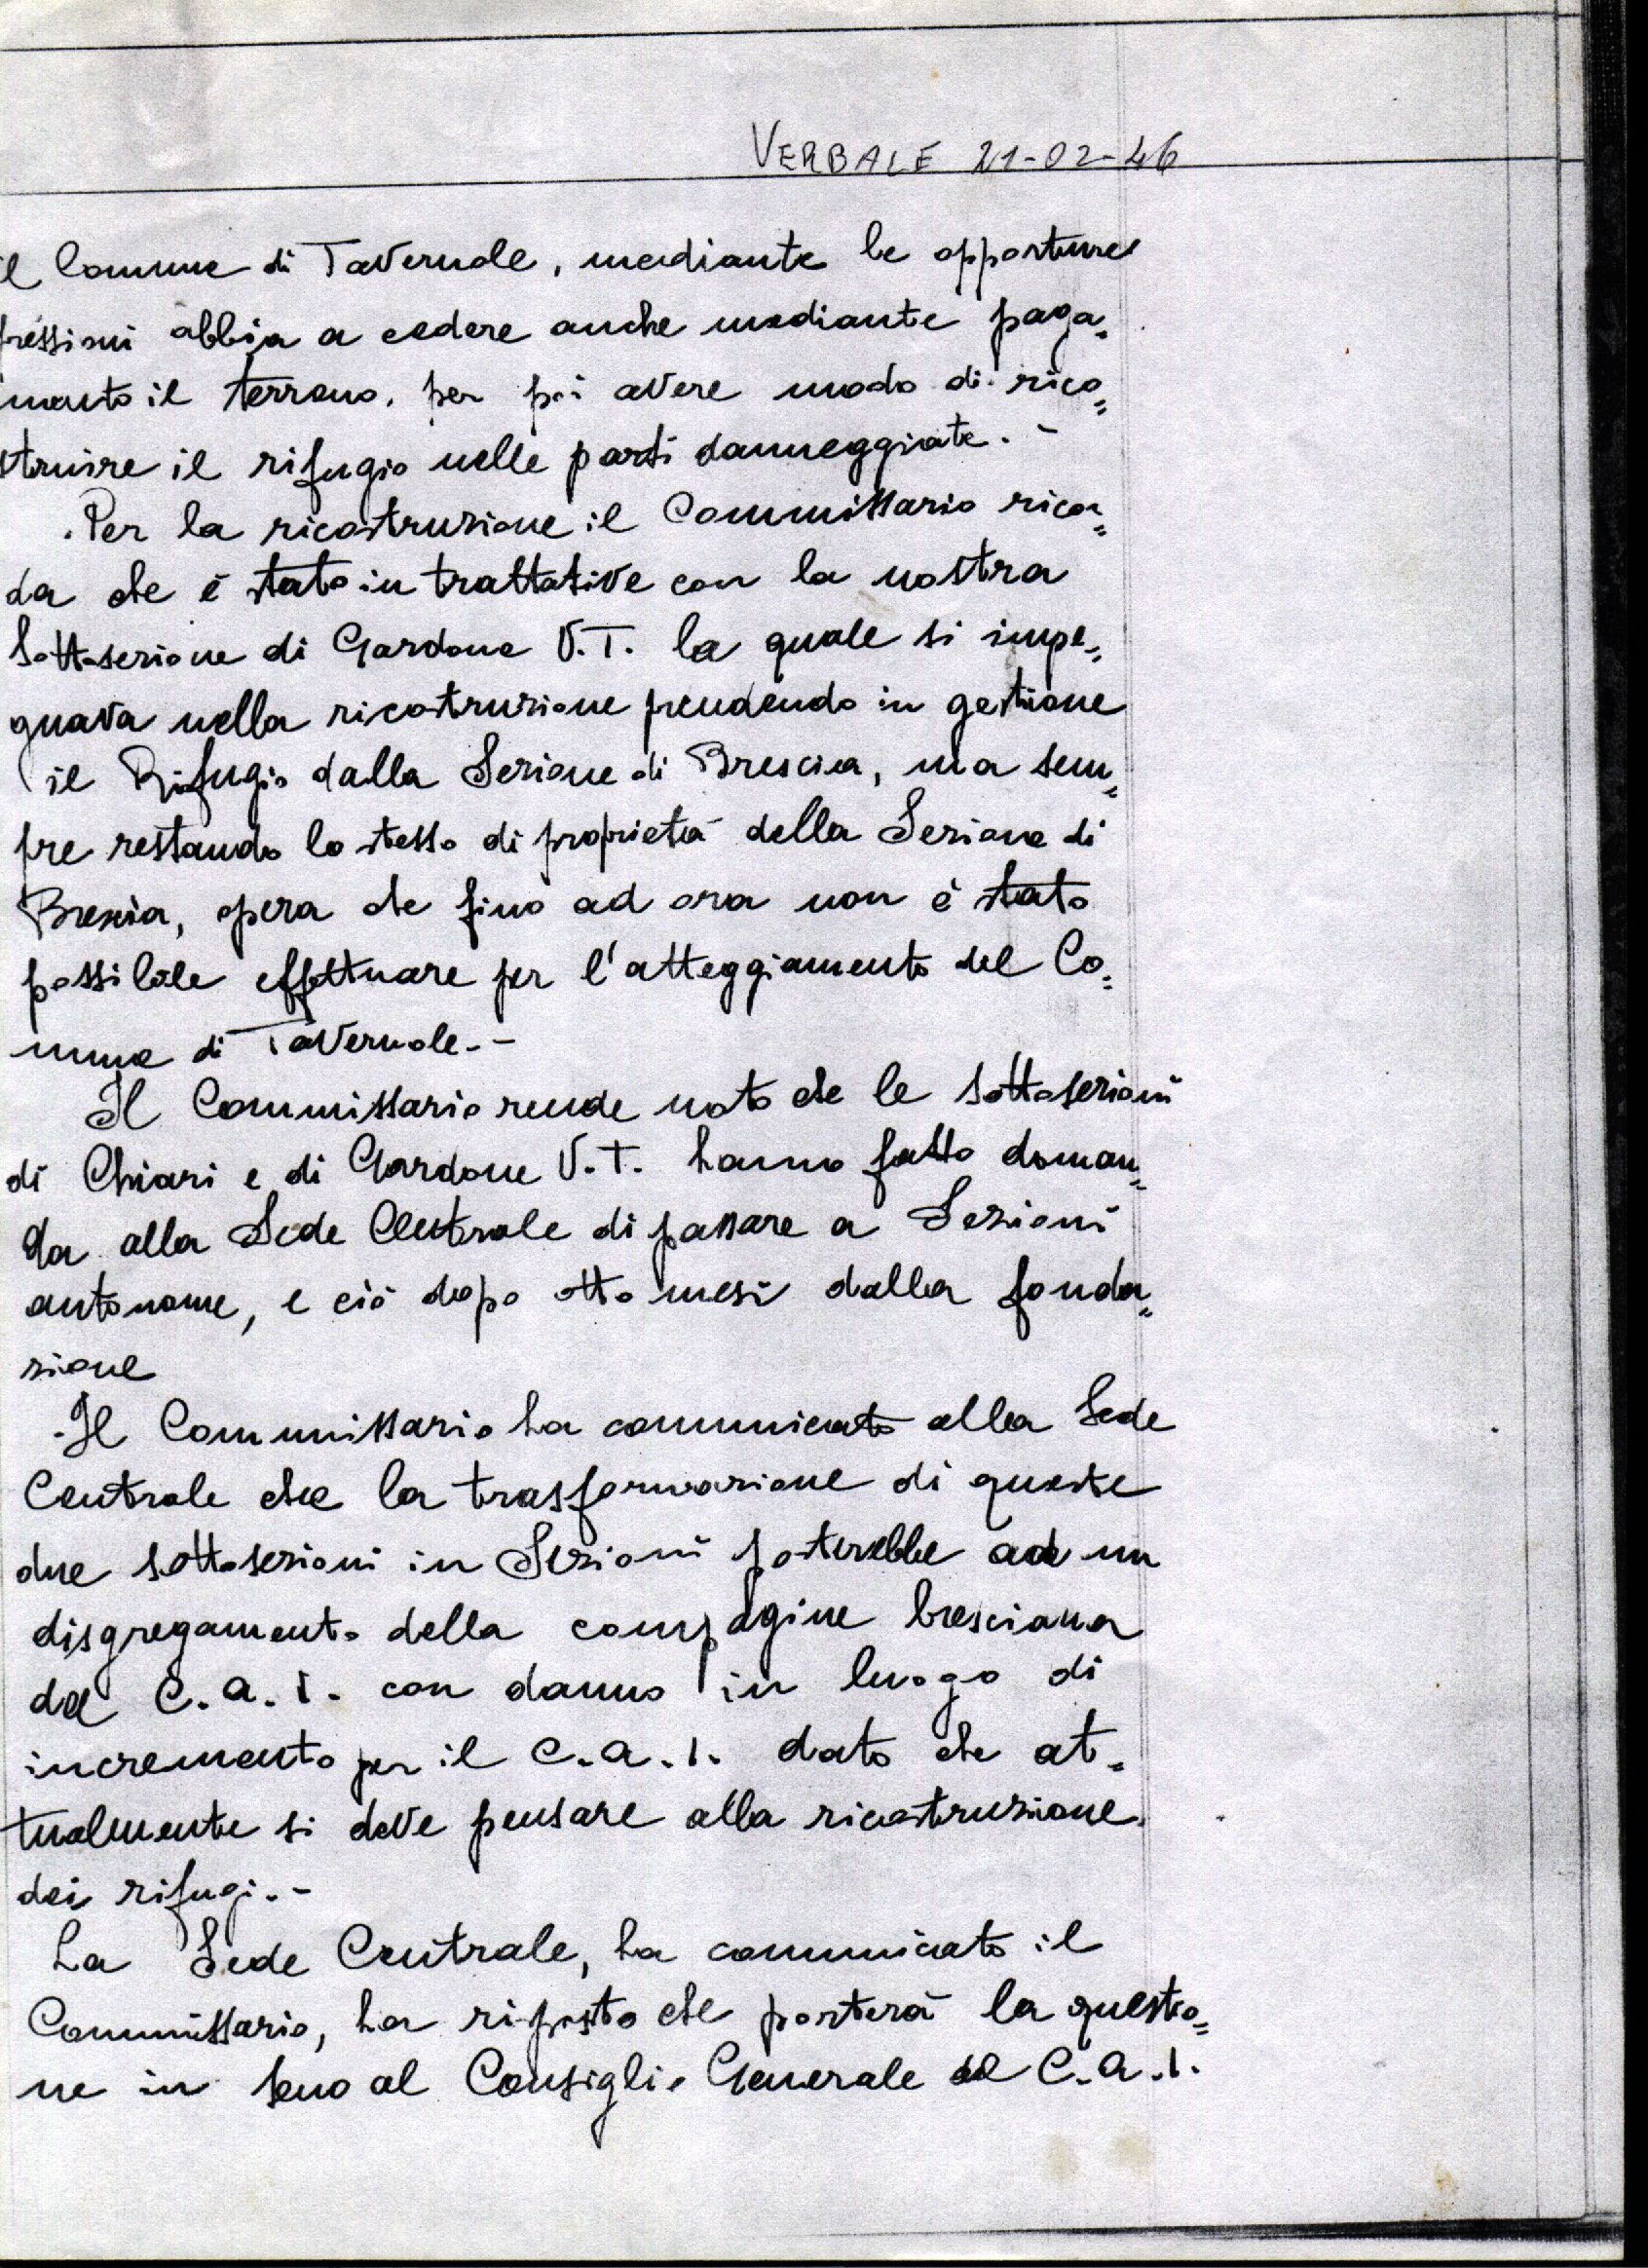 VERBALE 21-02-46
il Comune di Tavernole, mediante le opportune
pressioni abbia a cedere anche mediante paga=
mento il terreno, per poi avere modo di rico=
struire il rifugio nelle parti danneggiate.-
Per la ricostruzione il Commissario ricor=
da che è stato in trattative con la nostra
Sottosezione di Gardone V.T. la quale si impe=
gnava nella ricostruzione prendendo in gestione
il Rifugio dalla Sezione di Brescia, ma sem=
pre restando lo stesso di proprietà della Sezione di
Brescia, opera che fino ad ora non è stato
possibile effettuare per l'atteggiamento del Co=
mune di Tavernole.-
Il Commissario rende noto che le sottosezioni
di Chiari e di Gardone V.T. hanno fatto doman=
da alla Sede Centrale di passare a Sezioni
autonome, e ciò dopo otto mesi dalla fonda=
zione
-Il Commissario ha comunicato alla Sede
Centrale che la trasformazione di queste
due sottosezioni in Sezioni poterebbe ad un
disgregamento della compagine bresciana
del C.A.I. con danno in luogo di
incremento per il C.A.I. dato che at=
tualmente si deve pensare alla ricostruzione
dei rifugi.-
La Sede Centrale, ha comunicato il
Commissario, ha risposto che porterà la questio=
ne in seno al Consiglio Generale del C.A.I.